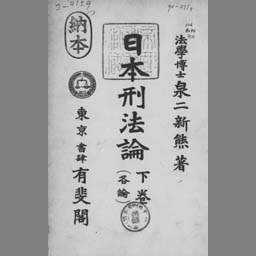 納本
法學博士 泉二新熊著
日本刑法論 下卷
(各論)
東京 書肆 有斐閣